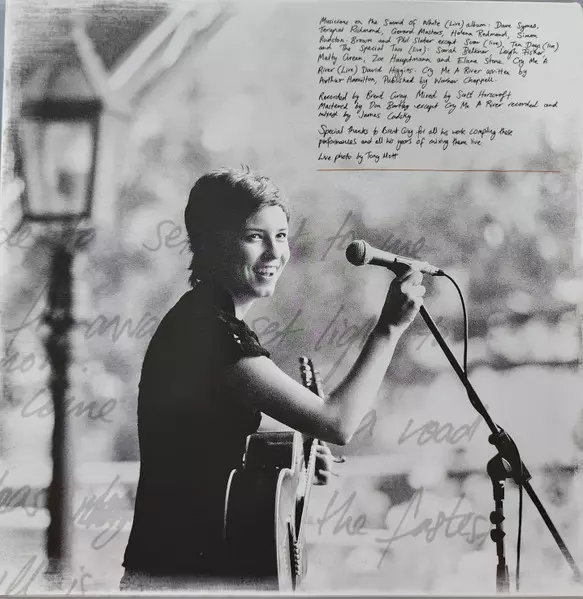 Musicians on the Sound of White (Live) album: Dave Symes,
Terepai Richmond, Gerard Masters, Helena Redmond, Simon
Rudston-Brown and Phil Slater except Scar (live), Ten Days (live)
and The Special Two (live): Sarah Belkner, Leigh Fisher,
Matty Green, Zoe Hauptmann and Elana Stone. Cry Me A
River (Live) David Higgins. Cry Me A River written by
Arthur Hamilton, Published by Warner Chappell.
Recorded by Brent Gray. Mixed by Scott Horscroft.
Mastered by Don Bartley except Cry Me A River recorded and
mixed by James Cadsky
Special thanks to Brent Gray for all his work compiling these
performances and all his years of mixing them live
Live photo by Tony Mott
to me
far away set light
come a road
the fastes
is